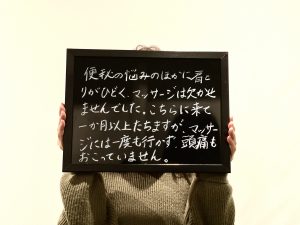 便秘の悩みのほかに肩こ
りがひどく、マッサージは欠かせ
ませんでした。こちらに来て
一か月以上たちますが、マッサー
ジには一度も行かず、頭痛も
おこっていません。